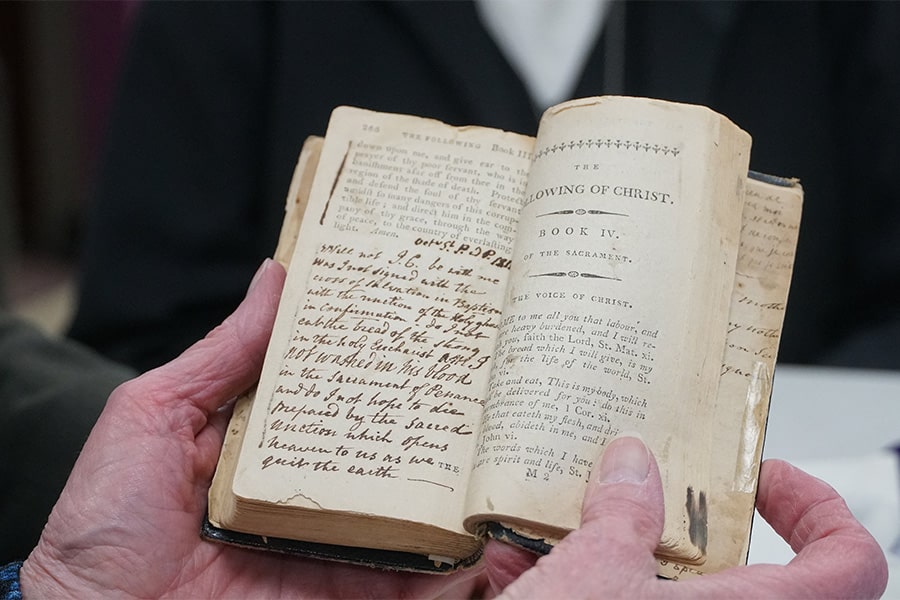 266 THE FOLLOWING Book III.
down upon me, and give ear to the
prayer of thy poor servant, who is in
banishment afar off from thee in the
region of the shade of death. Protect
and defend the soul of thy servant
amidst so many dangers of this corrup-
tible life; and direct him in the com-
pany of thy grace, through the way
of peace, to the country of everlasting
light. Amen.
Will not J.C. be with me
Was I not signed with the
cross of Salvation in Baptism
with the unction of the Holy ghost
in Confirmation do I not
eat the bread of the strong
in the holy Eucharist am I
not washed in his blood
in the Sacrament of Penance
and do I not hope to die
prepared by the sacred
unction which opens
heaven to us as we
quit the earth
THE
THE
LLOWING OF CHRIST.
BOOK IV.
OF THE SACRAMENT.
THE VOICE OF CHRIST.
ME to me all you that labour, and
re heavy burdened, and I will re-
you, saith the Lord, St. Mat. xi.
he bread which I will give, is my
for the life of the world, St.
vi.
ake and eat, This is my body, which
be delivered for you; do this in
embrance of me, 1 Cor. xi.
that eateth my flesh, and dri
blood, abideth in me, and I
John vi.
The words which I have
re spirit and life, St. J
M 2